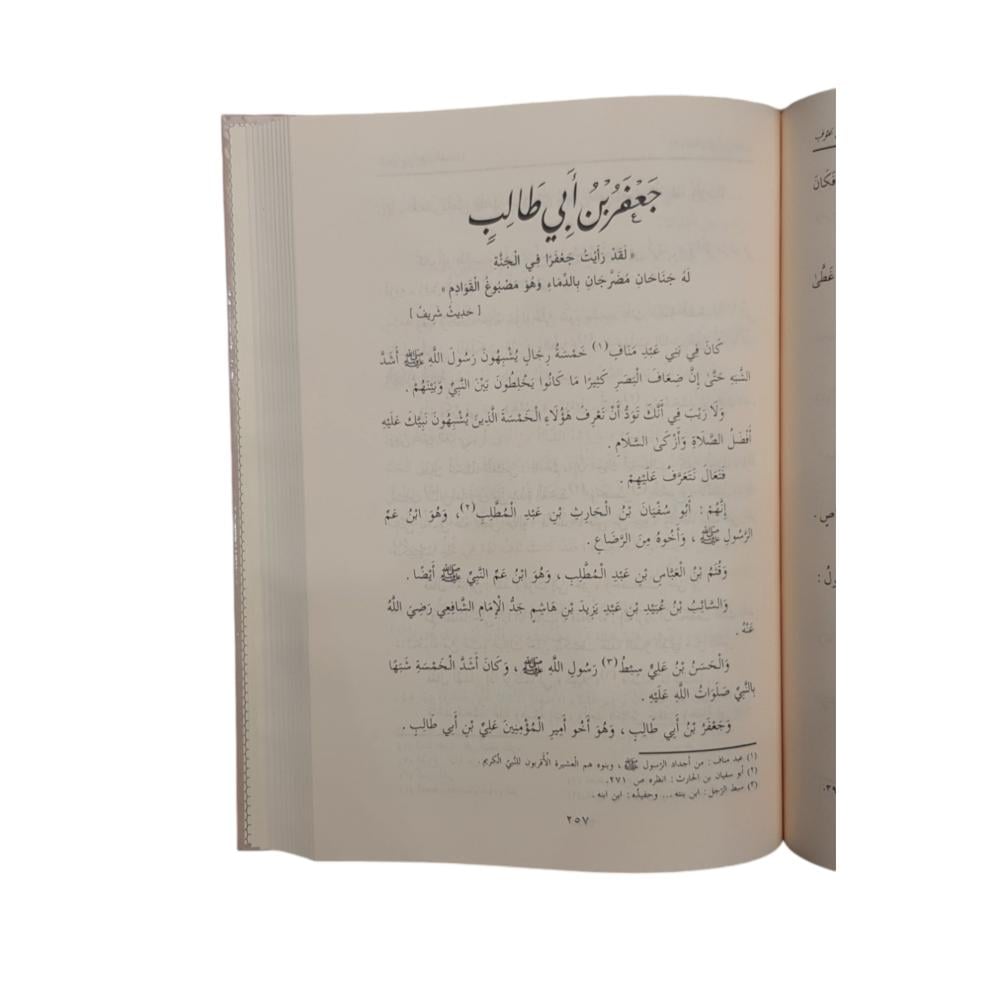 جَعْفَرُ بْنُ أَبِي طَالِبٍ
« لَقَدْ رَأَيْتُ جَعْفَرًا فِي الْجَنَّةِ
لَهُ جَنَاحَانِ مُضَرَّجَانِ بِالدِّمَاءِ وَهُوَ مَصْبُوغُ الْقَوَادِمِ »
[ حَدِيثٌ شَرِيفٌ ]
كَانَ فِي بَنِي عَبْدِ مَنَافٍ(١) خَمْسَةُ رِجَالٍ يُشْبِهُونَ رَسُولَ اللَّهِ ﷺ أَشَدَّ
الشَّبَهِ حَتَّى إِنَّ ضِعَافَ الْبَصَرِ كَثِيرًا مَا كَانُوا يَخْلِطُونَ بَيْنَ النَّبِيِّ وَبَيْنَهُمْ .
وَلَا رَيْبَ فِي أَنَّكَ تَوَدُّ أَنْ تَعْرِفَ هَؤُلَاءِ الْخَمْسَةَ الَّذِينَ يُشْبِهُونَ نَبِيَّكَ عَلَيْهِ
أَفْضَلُ الصَّلَاةِ وَأَزْكَى السَّلَامِ .
فَتَعَالَ نَتَعَرَّفْ عَلَيْهِمْ .
إِنَّهُمْ : أَبُو سُفْيَانَ بْنُ الْحَارِثِ بْنِ عَبْدِ الْمُطَّلِبِ(٢)، وَهُوَ ابْنُ عَمِّ
الرَّسُولِ ﷺ ، وَأَخُوهُ مِنَ الرَّضَاعِ .
وَقُثَمُ بْنُ الْعَبَّاسِ بْنِ عَبْدِ الْمُطَّلِبِ ، وَهُوَ ابْنُ عَمِّ النَّبِيِّ ﷺ أَيْضًا .
وَالسَّائِبُ بْنُ عُبَيْدِ بْنِ عَبْدِ يَزِيدَ بْنِ هَاشِمٍ جَدُّ الْإِمَامِ الشَّافِعِي رَضِيَ اللَّهُ
عَنْهُ .
وَالْحَسَنُ بْنُ عَلِيٍّ سِبْطُ(٣) رَسُولِ اللَّهِ ﷺ ، وَكَانَ أَشَدَّ الْخَمْسَةِ شَبَهًا
بِالنَّبِيِّ صَلَوَاتُ اللَّهِ عَلَيْهِ .
وَجَعْفَرُ بْنُ أَبِي طَالِبٍ ، وَهُوَ أَخُو أَمِيرِ الْمُؤْمِنِينَ عَلِيِّ بْنِ أَبِي طَالِبٍ .
(١) عبد مناف : من أجداد الرسول ﷺ ، وبنوه هم العشيرة الأقربون للنبي الكريم .
(٢) أبو سفيان بن الحارث : انظره ص ٢٧١ .
(٣) سبط الرّجل : ابن بنته ... وحفيدُه : ابن ابنه .
٢٥٧
فَكَانَ
غَطَّى
صٍ .
ولُ :